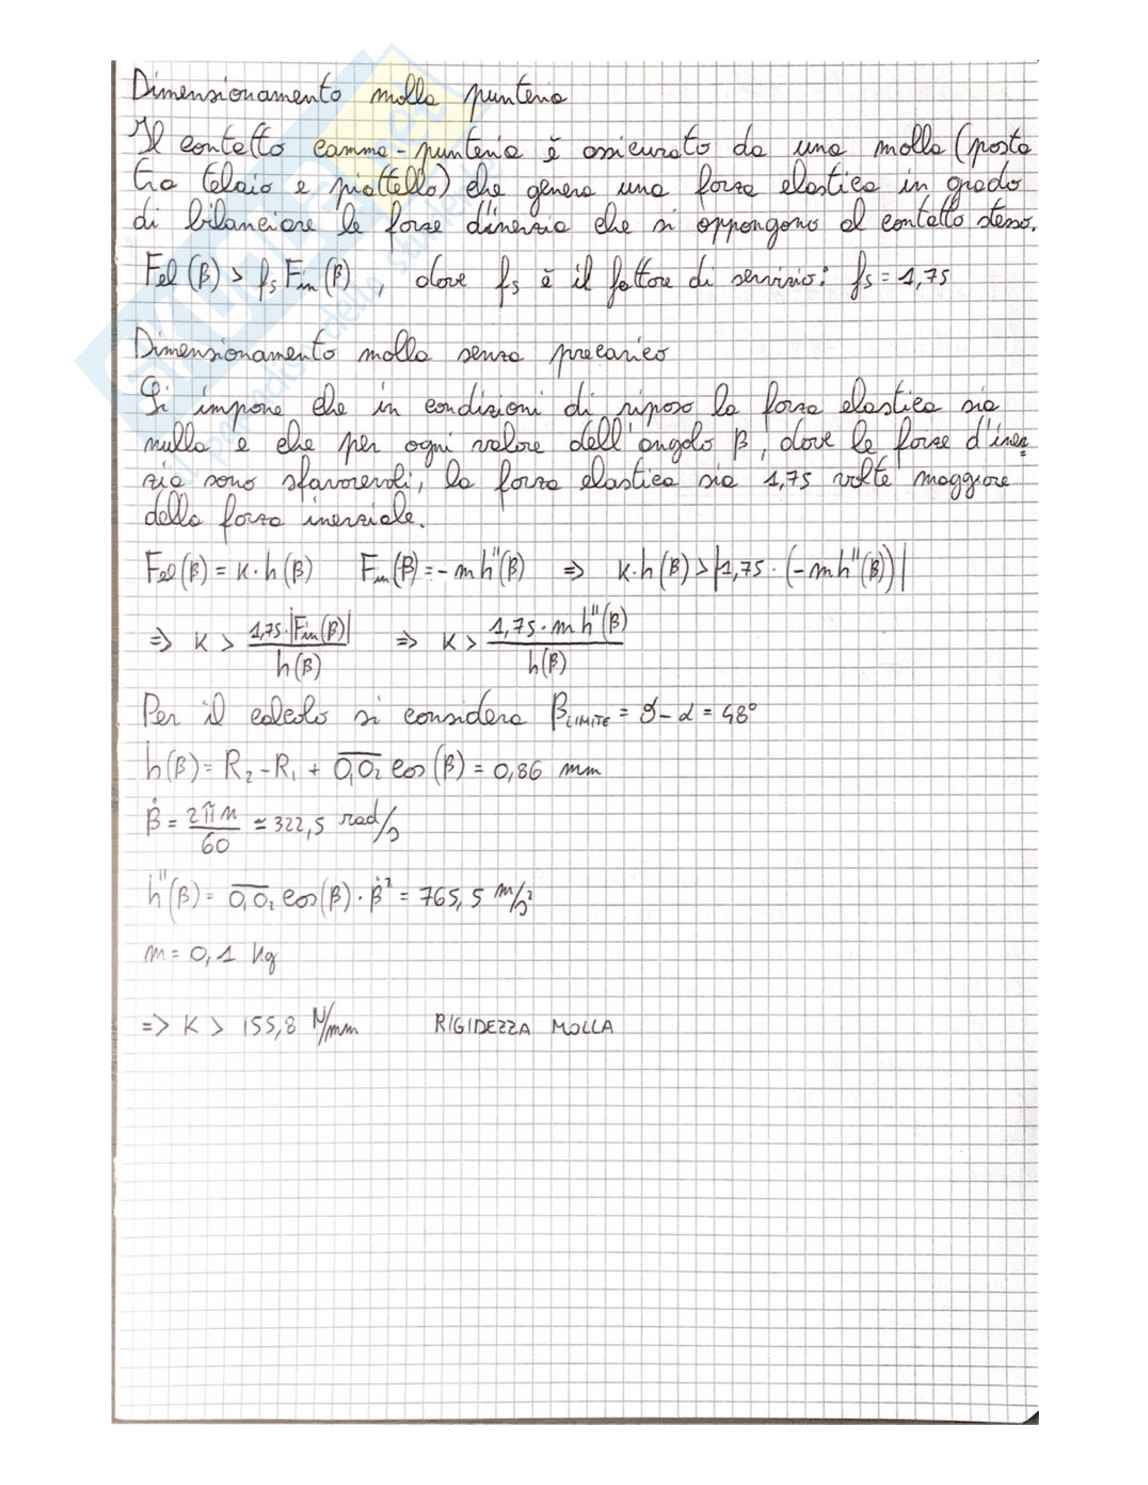 Dimensionamento molla punteria
Il contatto camma-punteria è assicurato da una molla (posta
tra telaio e piattello) che genera una forza elastica in grado
di bilanciare le forze d'inerzia che si oppongono al contatto stesso.
Fel (β) > fs Fin (β) , dove fs è il fattore di servizio: fs = 1,75
Dimensionamento molla senza precarico
Si impone che in condizioni di riposo la forza elastica sia
nulla e che per ogni valore dell'angolo β, dove le forze d'iner
zia sono sfavorevoli, la forza elastica sia 1,75 volte maggiore
della forza inerziale.
Fel(β) = K·h(β) Fin(β) = -mh''(β) ⇒ K·h(β) > |1,75·(-mh''(β))|
⇒ K > 1,75·|Fin(β)| / h(β) ⇒ K > 1,75·mh''(β) / h(β)
Per il calcolo si considera βLIMITE = ϑ-α = 48°
h(β) = R2-R1 + O1O2 cos(β) = 0,86 mm
β̇ = 2πn / 60 ≃ 322,5 rad/s
h''(β) = O1O2 cos(β)·β̇² = 765,5 m/s²
m = 0,1 Kg
⇒ K > 155,8 N/mm RIGIDEZZA MOLLA